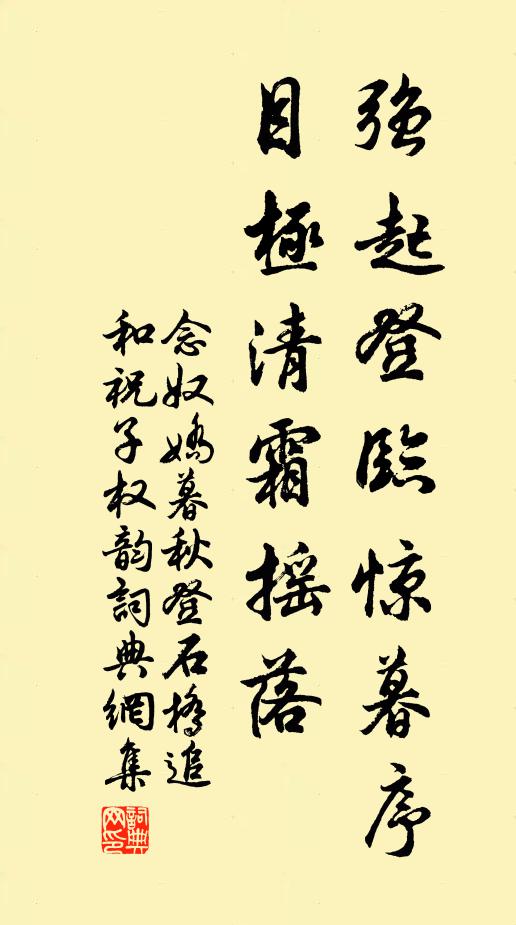 强起登臨惊暮序
目極清霜摇落
念奴嬌暮秋登石橋追
和祝子权韵詞典網集
詞典
网印